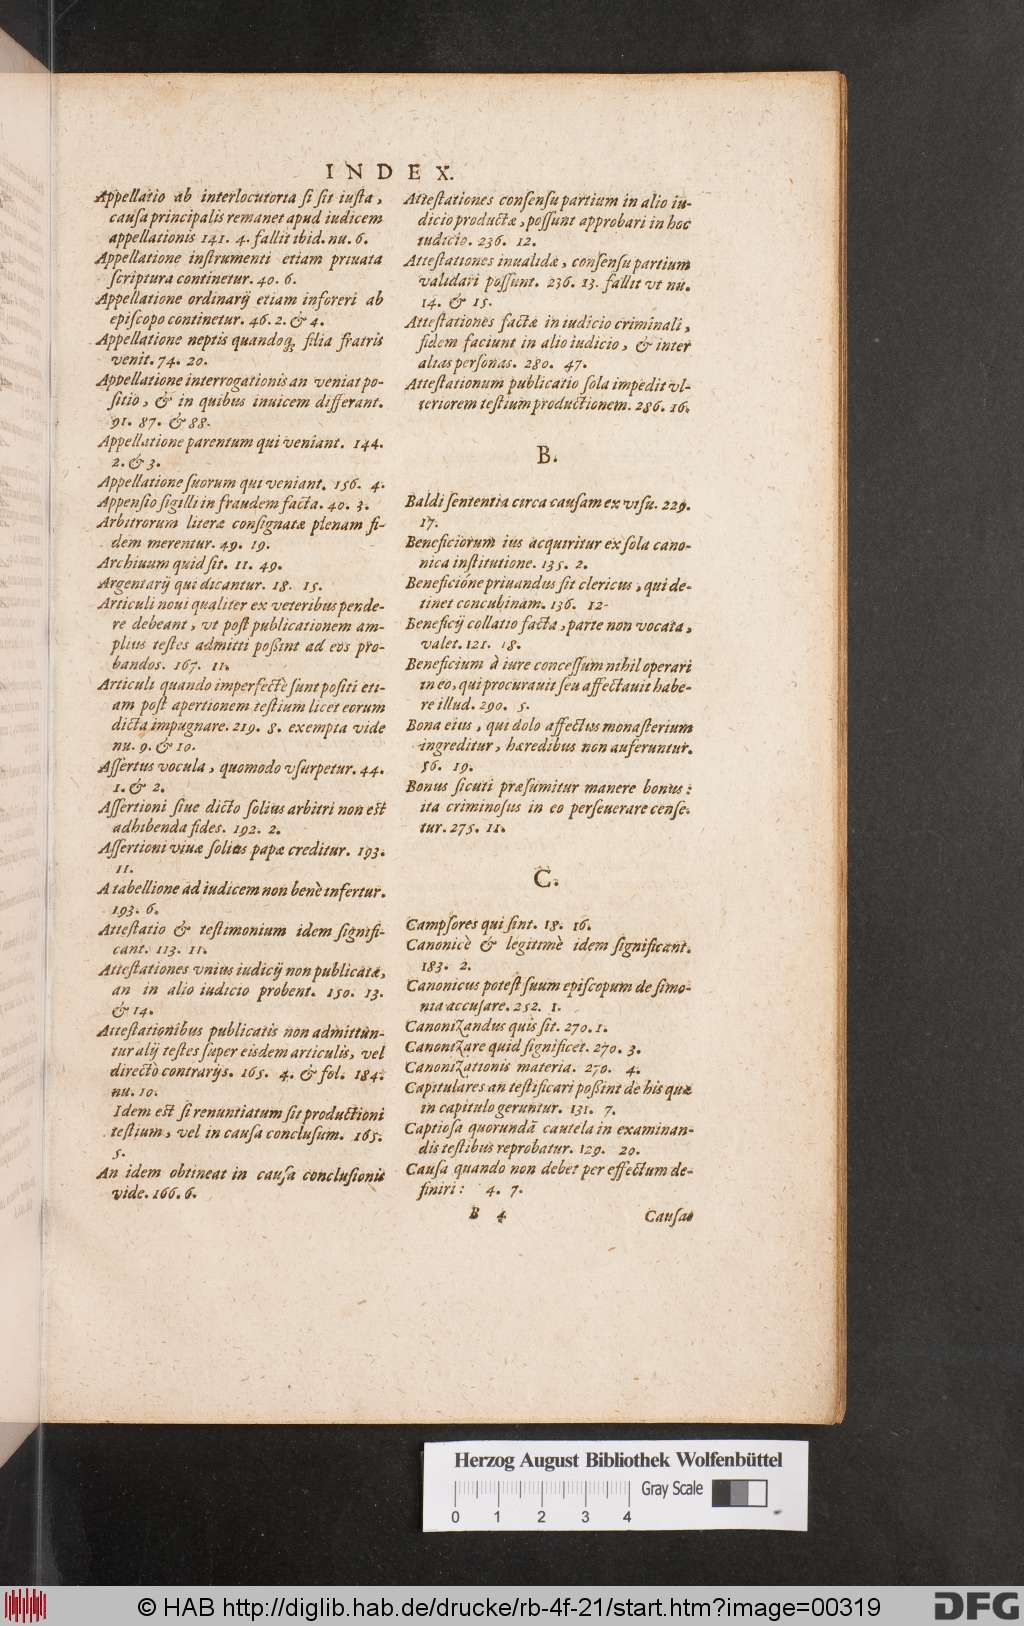 INDEX.
Appellatio ab interlocutoria si sit iusta,
causa principalis remanet apud iudicem
appellationis 141. 4. fallit ibid. nu. 6.
Appellatione instrumenti etiam priuata
scriptura continetur. 40. 6.
Appellatione ordinarij etiam infereri ab
episcopo continetur. 46. 2. & 4.
Appellatione neptis quandoq; filia fratris
venit. 74. 20.
Appellatione interrogationis an veniat po-
sitio, & in quibus inuicem differant.
91. 87. & 88.
Appellatione parentum qui veniant. 144.
2. & 3.
Appellatione suorum qui veniant. 156. 4.
Appensio sigilli in fraudem facta. 40. 3.
Arbitrorum literæ consignatæ plenam fi-
dem merentur. 49. 19.
Archiuum quid sit. 11. 49.
Argentarij qui dicantur. 18. 15.
Articuli noui qualiter ex veteribus pende-
re debeant, vt post publicationem am-
plius testes admitti possint ad eos pro-
bandos. 167. 11.
Articuli quando imperfectè sunt positi eti-
am post apertionem testium licet eorum
dicta impugnare. 219. 8. exempta vide
nu. 9. & 10.
Assertus vocula, quomodo vsurpetur. 44.
1. & 2.
Assertioni siue dicto solius arbitri non est
adhibenda fides. 192. 2.
Assertioni viuæ solius papæ creditur. 193.
11.
A tabellione ad iudicem non benè infertur.
193. 6.
Attestatio & testimonium idem signifi-
cant. 113. 11.
Attestationes vnius iudicij non publicatæ,
an in alio iudicio probent. 150. 13.
& 14.
Attestationibus publicatis non admittun-
tur alij testes super eisdem articulis, vel
directò contrarijs. 165. 4. & fol. 184.
nu. 10.
Idem est si renuntiatum sit productioni
testium, vel in causa conclusum. 165.
5.
An idem obtineat in causa conclusionis
vide. 166. 6.
Attestationes consensu partium in alio iu-
dicio productæ, possunt approbari in hoc
iudicio. 236. 12.
Attestationes inualidæ, consensu partium
validari possunt. 236. 13. fallit vt nu.
14. & 15.
Attestationes factæ in iudicio criminali,
fidem faciunt in alio iudicio, & inter
alias personas. 280. 47.
Attestationum publicatio sola impedit vl-
teriorem testium productionem. 286. 16.
B.
Baldi sententia circa causam ex visu. 229.
17.
Beneficiorum ius acquiritur ex sola cano-
nica institutione. 135. 2.
Beneficióne priuandus sit clericus, qui de-
tinet concubinam. 136. 12.
Beneficij collatio facta, parte non vocata,
valet. 121. 18.
Beneficium à iure concessum nihil operari
in eo, qui procurauit seu affectauit habe-
re illud. 290. 5.
Bona eius, qui dolo affectus monasterium
ingreditur, hæredibus non auferuntur.
56. 19.
Bonus sicuti præsumitur manere bonus:
ita criminosus in eo perseuerare cense-
tur. 275. 11.
C.
Campsores qui sint. 18. 16.
Canonicè & legitimè idem significant.
183. 2.
Canonicus potest suum episcopum de simo-
nia accusare. 252. 1.
Canonizandus quis sit. 270. 1.
Canonizare quid significet. 270. 3.
Canonizationis materia. 270. 4.
Capitulares an testificari possint de his quæ
in capitulo geruntur. 131. 7.
Captiosa quorundã cautela in examinan-
dis testibus reprobatur. 129. 20.
Causa quando non debet per effectum de-
finiri: 4. 7.
B 4
Causæ
Herzog August Bibliothek Wolfenbüttel
Gray Scale
0 1 2 3 4
© HAB http://diglib.hab.de/drucke/rb-4f-21/start.htm?image=00319
DFG